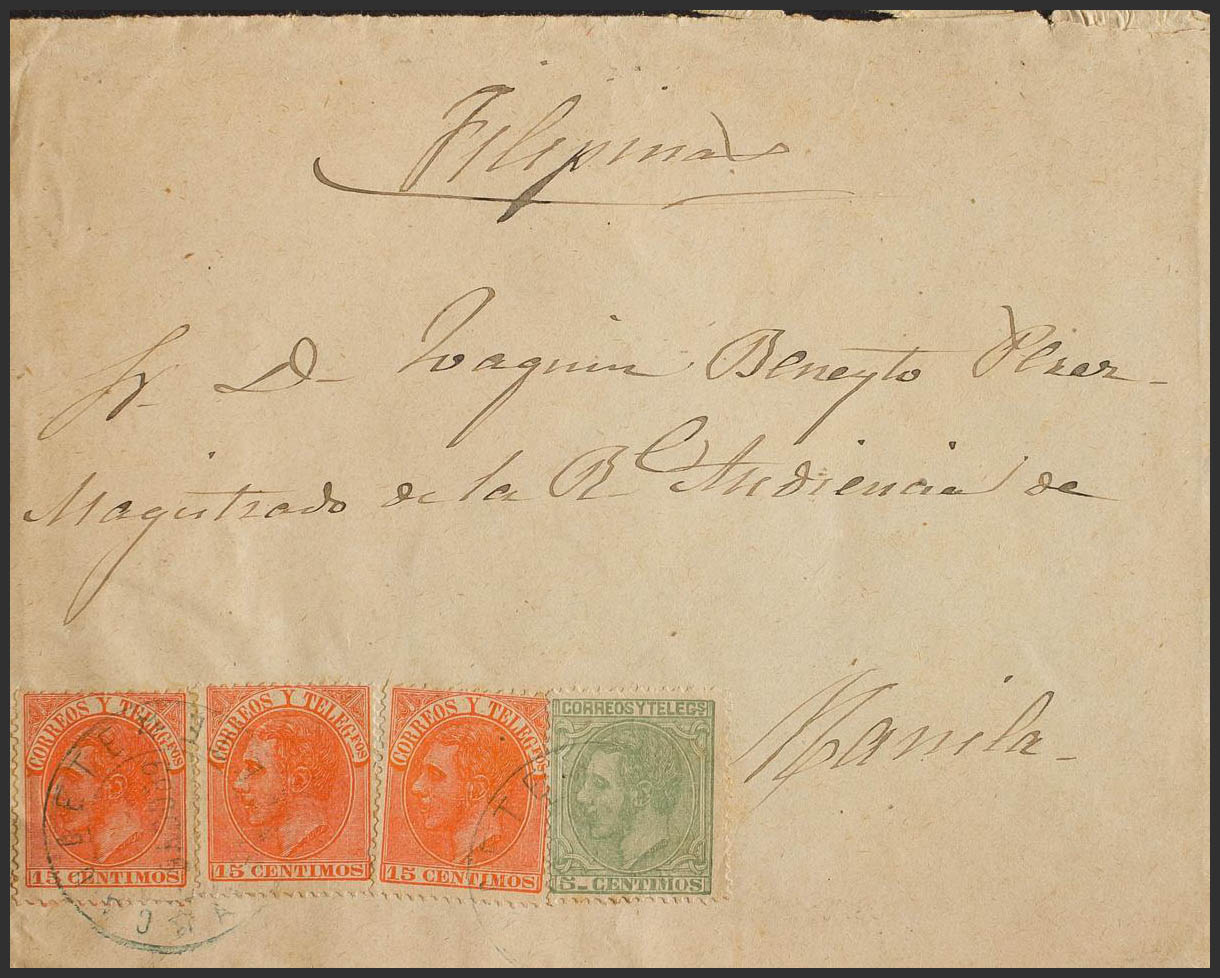 Filipinas
Sr. D. Joaquin Beneyto Perez
Magistrado de la Rl Audiencia de
Manila
CORREOS Y TELEGFOS
15 CENTIMOS
CORREOS Y TELEGFOS
15 CENTIMOS
CORREOS Y TELEGFOS
15 CENTIMOS
CORREOS Y TELEGS
5- CENTIMOS